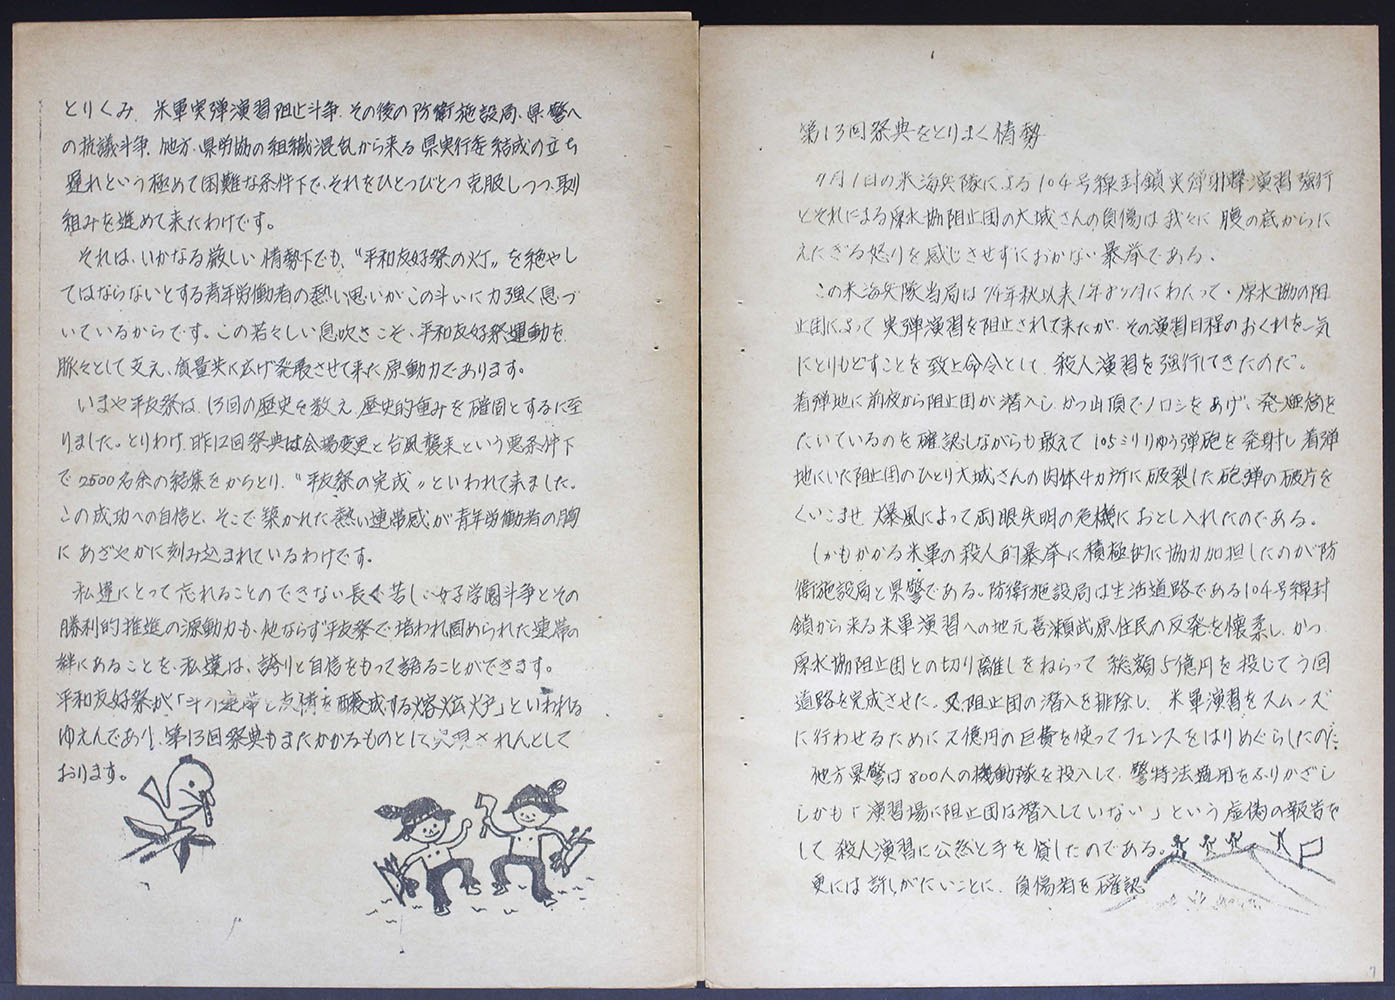 とりくみ、米軍実弾演習阻止斗争、その後の防衛施設局、県警へ
の抗議斗争、他方、県労協の組織混乱から来る県実行委結成の立ち
遅れという極めて困難な条件下で、それをひとつびとつ克服しつつ、取
組みを進めて来たわけです。
それは、いかなる厳しい情勢下でも、“平和友好祭の灯”を絶やし
てはならないとする青年労働者の熱い思いがこの斗いに力強く息づ
いているからです。この若々しい息吹きこそ、平和友好祭運動を、
脈々として支え、質量共に広げ発展させて来た原動力であります。
いまや平友祭は、13回の歴史を数え、歴史的重みを確固とするに至
りました。とりわけ、昨12回祭典は会場変更と台風襲来という悪条件下
で2500名余の結集をかちとり、“平友祭の完成”といわれて来ました。
この成功への自信と、そこで築かれた熱い連帯感が青年労働者の胸
にあざやかに刻み込まれているわけです。
私達にとって忘れることのできない長く苦しい女子学園斗争とその
勝利的推進の源動力も、他ならず平友祭で培われ固められた連帯の
絆にあることを、私達は、誇りと自信をもって語ることができます。
平和友好祭が「斗う連帯と友情を醸成する熔鉱炉」といわれる
ゆえんであり、第13回祭典もまたかかるものとして呈現されんとして
おります。
第13回祭典をとりまく情勢
7月1日の米海兵隊による104号線封鎖実弾射撃演習強行
とそれによる原水協阻止団の大城さんの負傷は我々に腹の底からに
えたぎる怒りを感じさせずにおかない暴挙である。
この米海兵隊当局は74年秋以来1年おヶ月にわたって、原水協の阻
止団によって実弾演習を阻止されて来たが、その演習日程のおくれを一気
にとりもどすことを致上命令として、殺人演習を強行してきたのだ。
着弾地に前夜から阻止団が潜入し、かつ山頂でノロシをあげ、発煙筒を
たいているのを確認しながらも敢えて105ミリりゅう弾砲を発射し着弾
地にいた阻止団のひとり大城さんの肉体4カ所に破裂した砲弾の破片を
くいこませ爆風によって両眼失明の危機におとし入れたのである。
しかもかかる米軍の殺人的暴挙に積極的に協力加担したのが防
衛施設局と県警である。防衛施設局は生活道路である104号線封
鎖から来る米軍演習への地元喜瀬武原住民の反発を懐柔し、かつ
原水協阻止団との切り離しをねらって総額5億円を投じてう回
道路を完成させた。又、阻止団の潜入を排除し、米軍演習をスムーズ
に行わせるために2億円の巨費を使ってフェンスをはりめぐらしたのだ。
他方県警は800人の機動隊を投入して、警特法適用をふりかざし
しかも「演習場に阻止団は潜入していない」という虚偽の報告を
して殺人演習に公然と手を貸したのである。
更には許しがたいことに、負傷者を確認
7